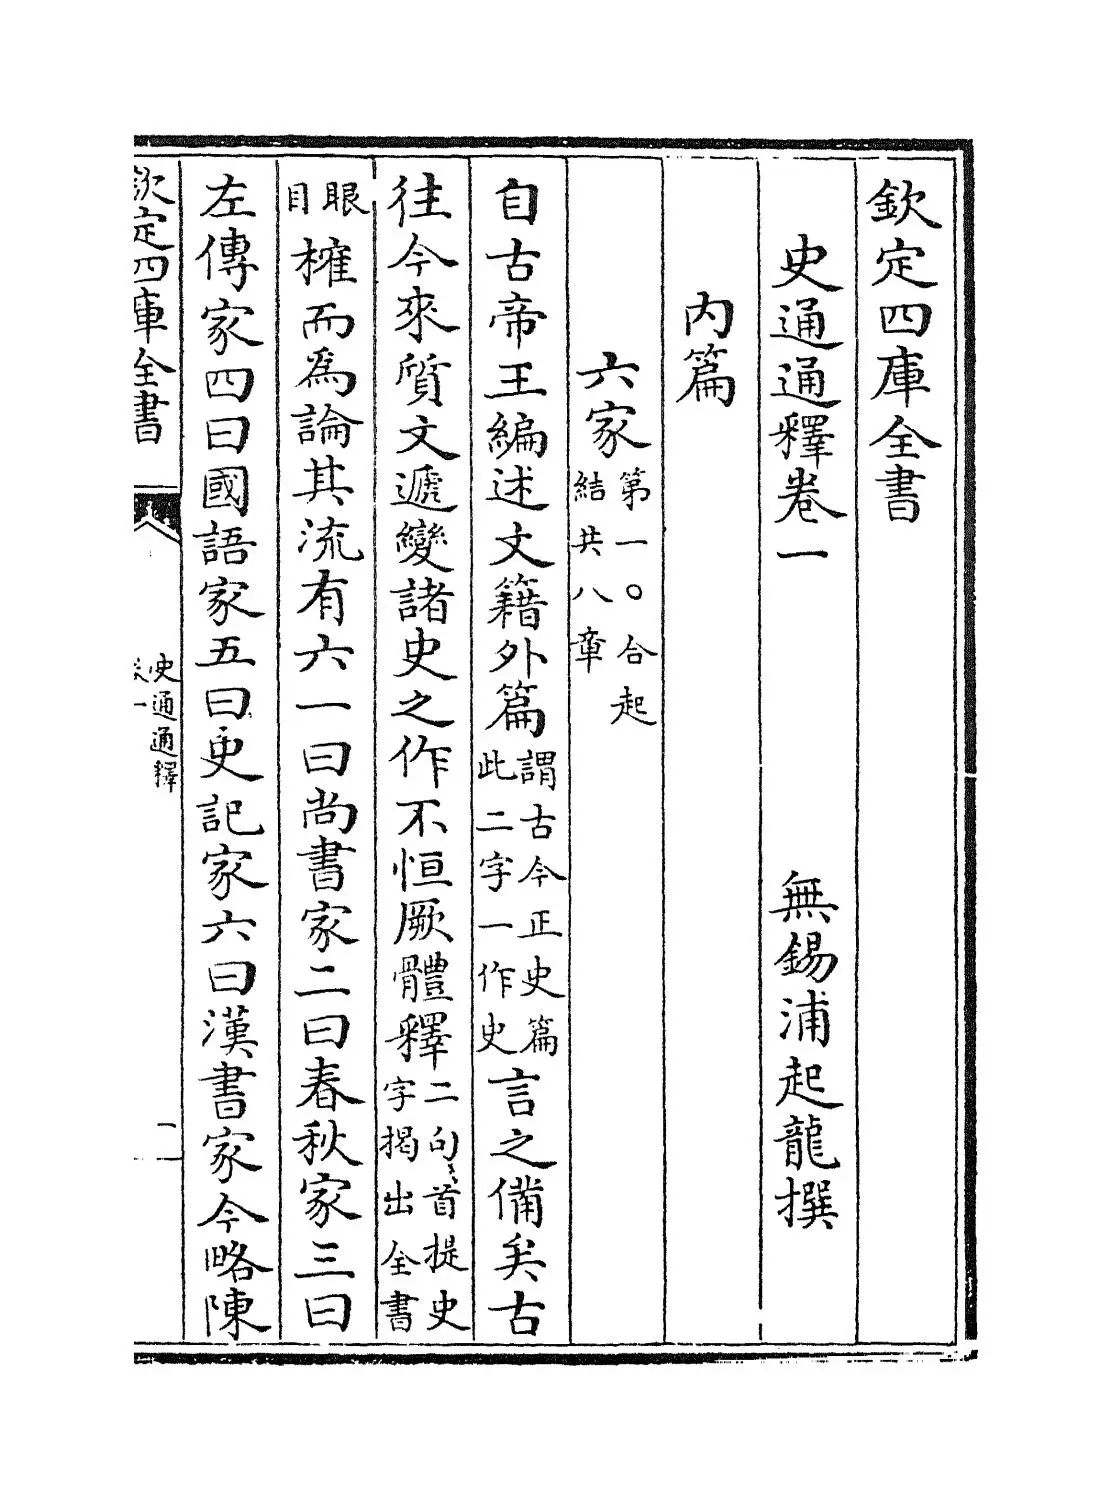 欽定四庫全書
史通通釋卷一
無錫浦起龍撰
內篇
六家第一〇合起結共八章
自古帝王編述文籍外篇謂古今正史篇此二字一作史言之備矣古
往今來質文遞變諸史之作不恒厥體釋二句首提史字揭出全書
眼目榷而為論其流有六一曰尚書家二曰春秋家三曰
左傳家四曰國語家五曰史記家六曰漢書家今略陳
欽定四庫全書
史通通釋
卷一
一